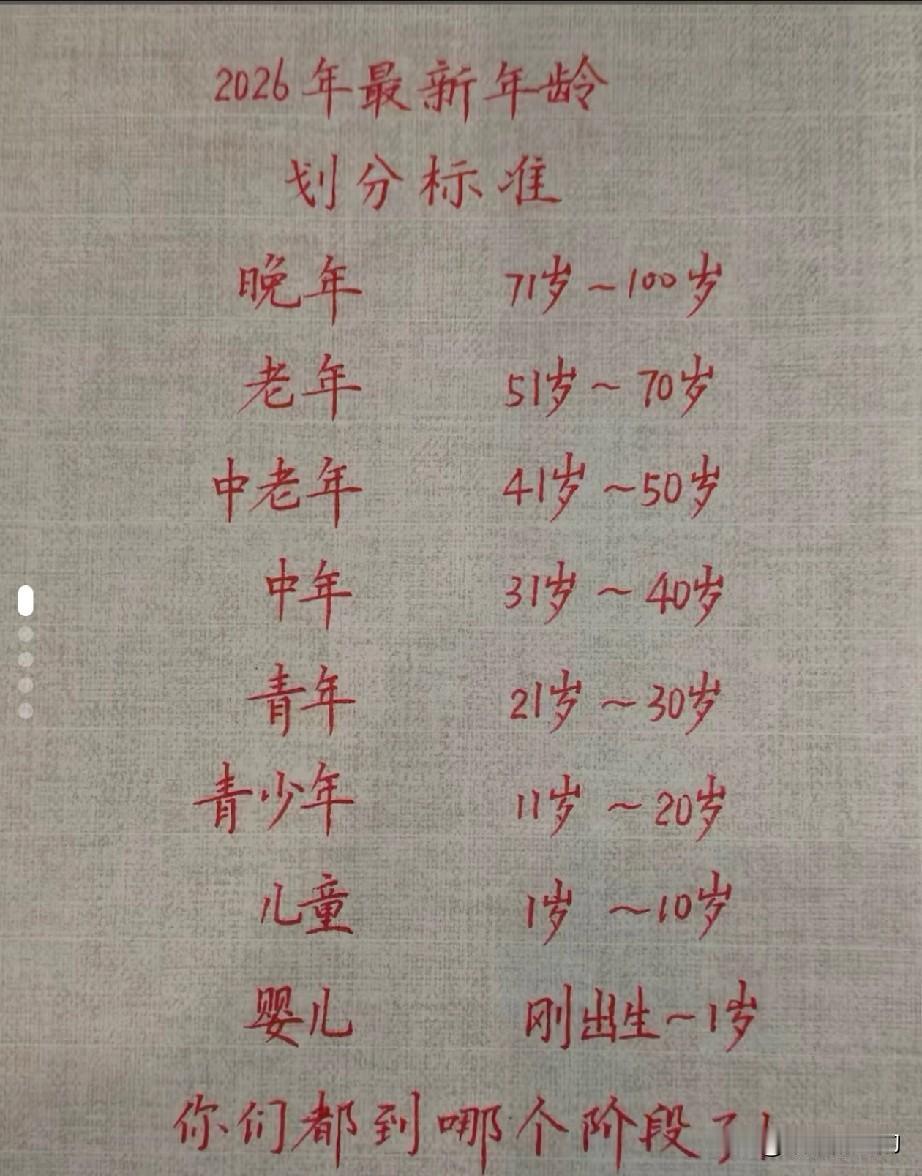 2026年最新年龄
划分标准
晚年 71岁~100岁
老年 51岁~70岁
中老年 41岁~50岁
中年 31岁~40岁
青年 21岁~30岁
青少年 11岁~20岁
儿童 1岁 ~10岁
婴儿 刚出生~1岁
你们都到哪个阶段了